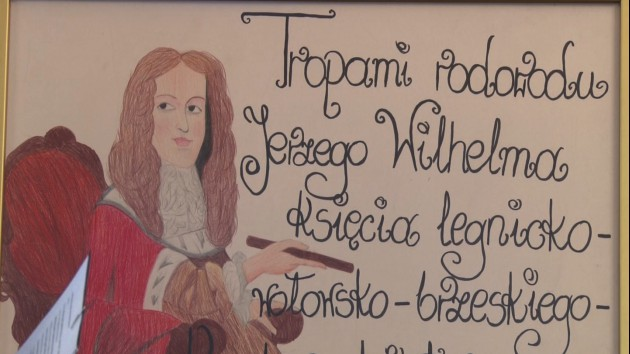 Tropami rodowodu
Jerzego Wilhelma
księcia legnicko-
wołowsko-brzeskiego-